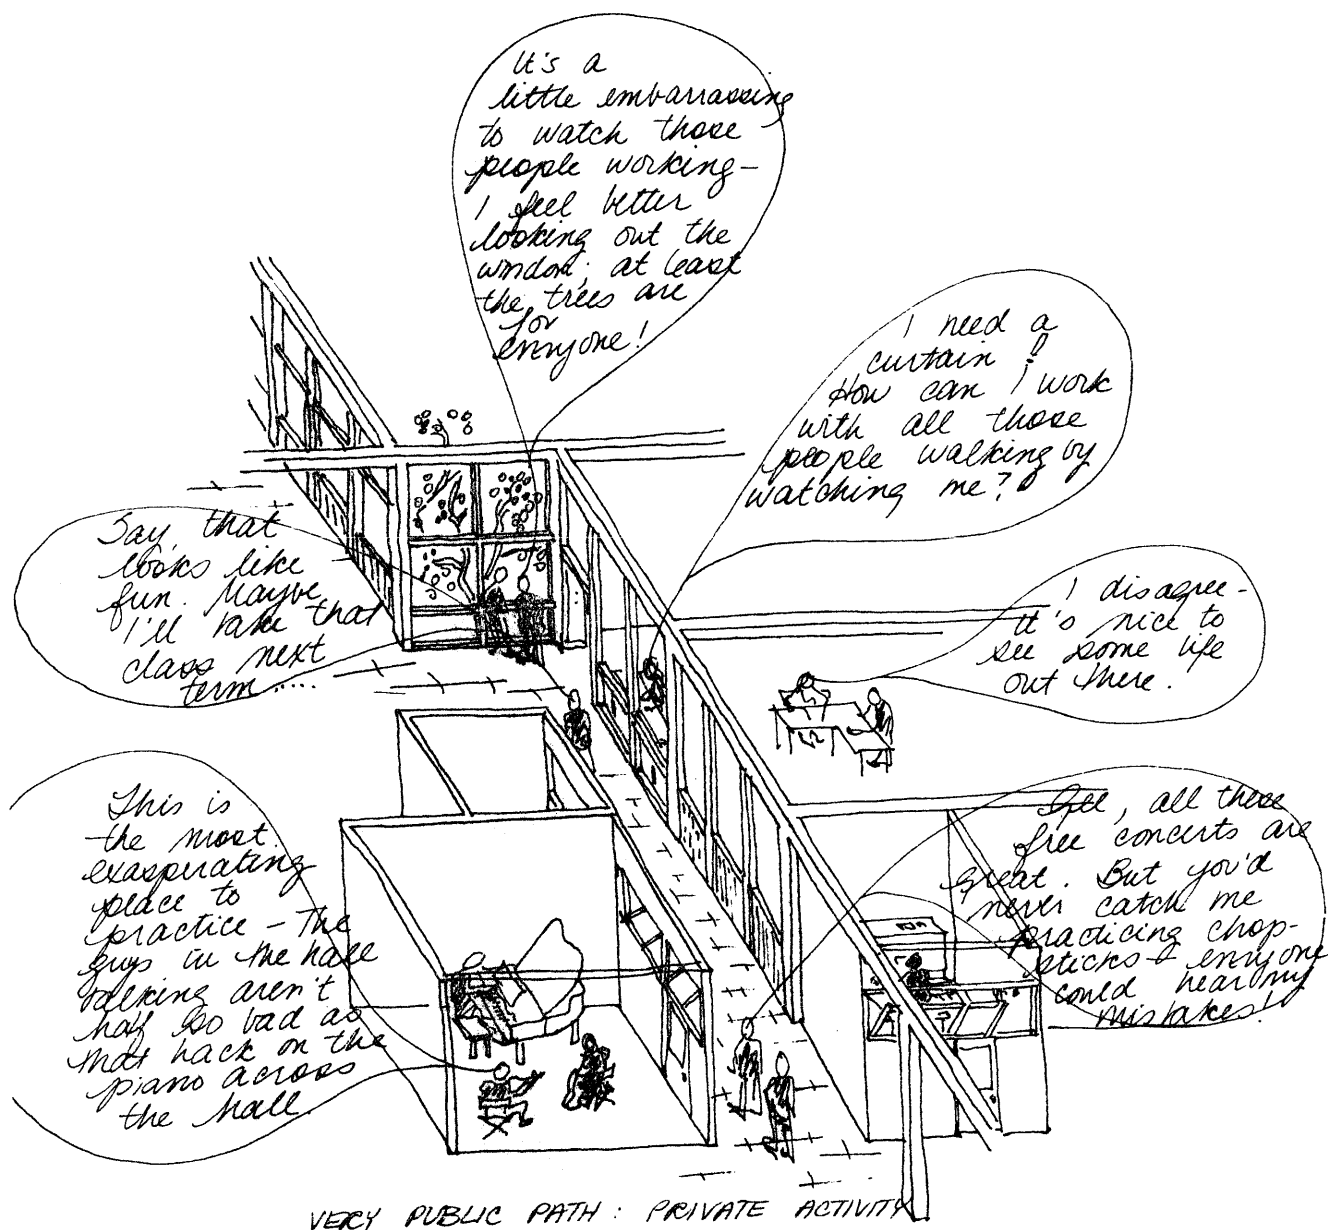 It's a
little embarrassing
to watch those
people working—
I feel better
looking out the
window; at least
the trees are
for
everyone!
I need a
curtain!
How can I work
with all those
people walking by
watching me?
Say, that
looks like
fun. Maybe
I'll take that
class next
term.....
I disagree-
It's nice to
see some life
out there.
This is
the most
exasperating
place to
practice - The
guys in the hall
talking aren't
half so bad as
that hack on the
piano across
the hall.
Gee, all these
free concerts are
great. But you'd
never catch me
practicing chop-
sticks - everyone
could hear my
mistakes!
VERY PUBLIC PATH: PRIVATE ACTIVITY